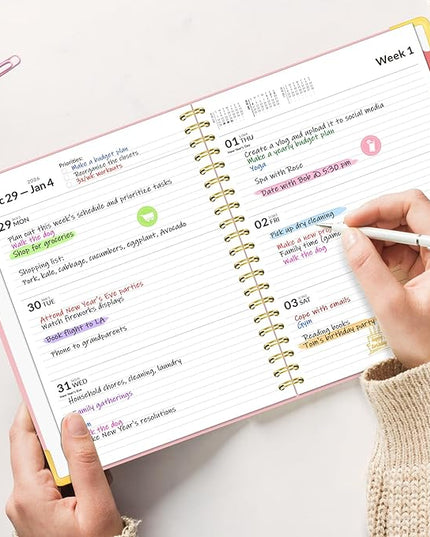 2026
29 — Jan 4
Priorities:
Make a budget plan
Reorganise the closets
3x/wk workouts
29 MON
Plan out this week's schedule and prioritize tasks
Walk the dog
Shop for groceries
Shopping list:
Pork, kale, cabbage, cucumbers, eggplant, Avocado
30 TUE
Attend New Year's Eve parties
Watch fireworks displays
Book flight to LA
Phone to grandparents
31 WED
Household chores, cleaning, laundry
Family gatherings
the dog
New Year's resolutions
Week 1
01 THU
New Year's Day
Create a vlog and upload it to social media
Make a yearly budget plan
Yoga
Spa with Rose
Date with Bob @ 5:30 PM
02 FRI
Pick up dry cleaning
Make a new
Family time
Walk the dog
03 SAT
Cope with emails
Gym
Reading books
Tom's birthday party